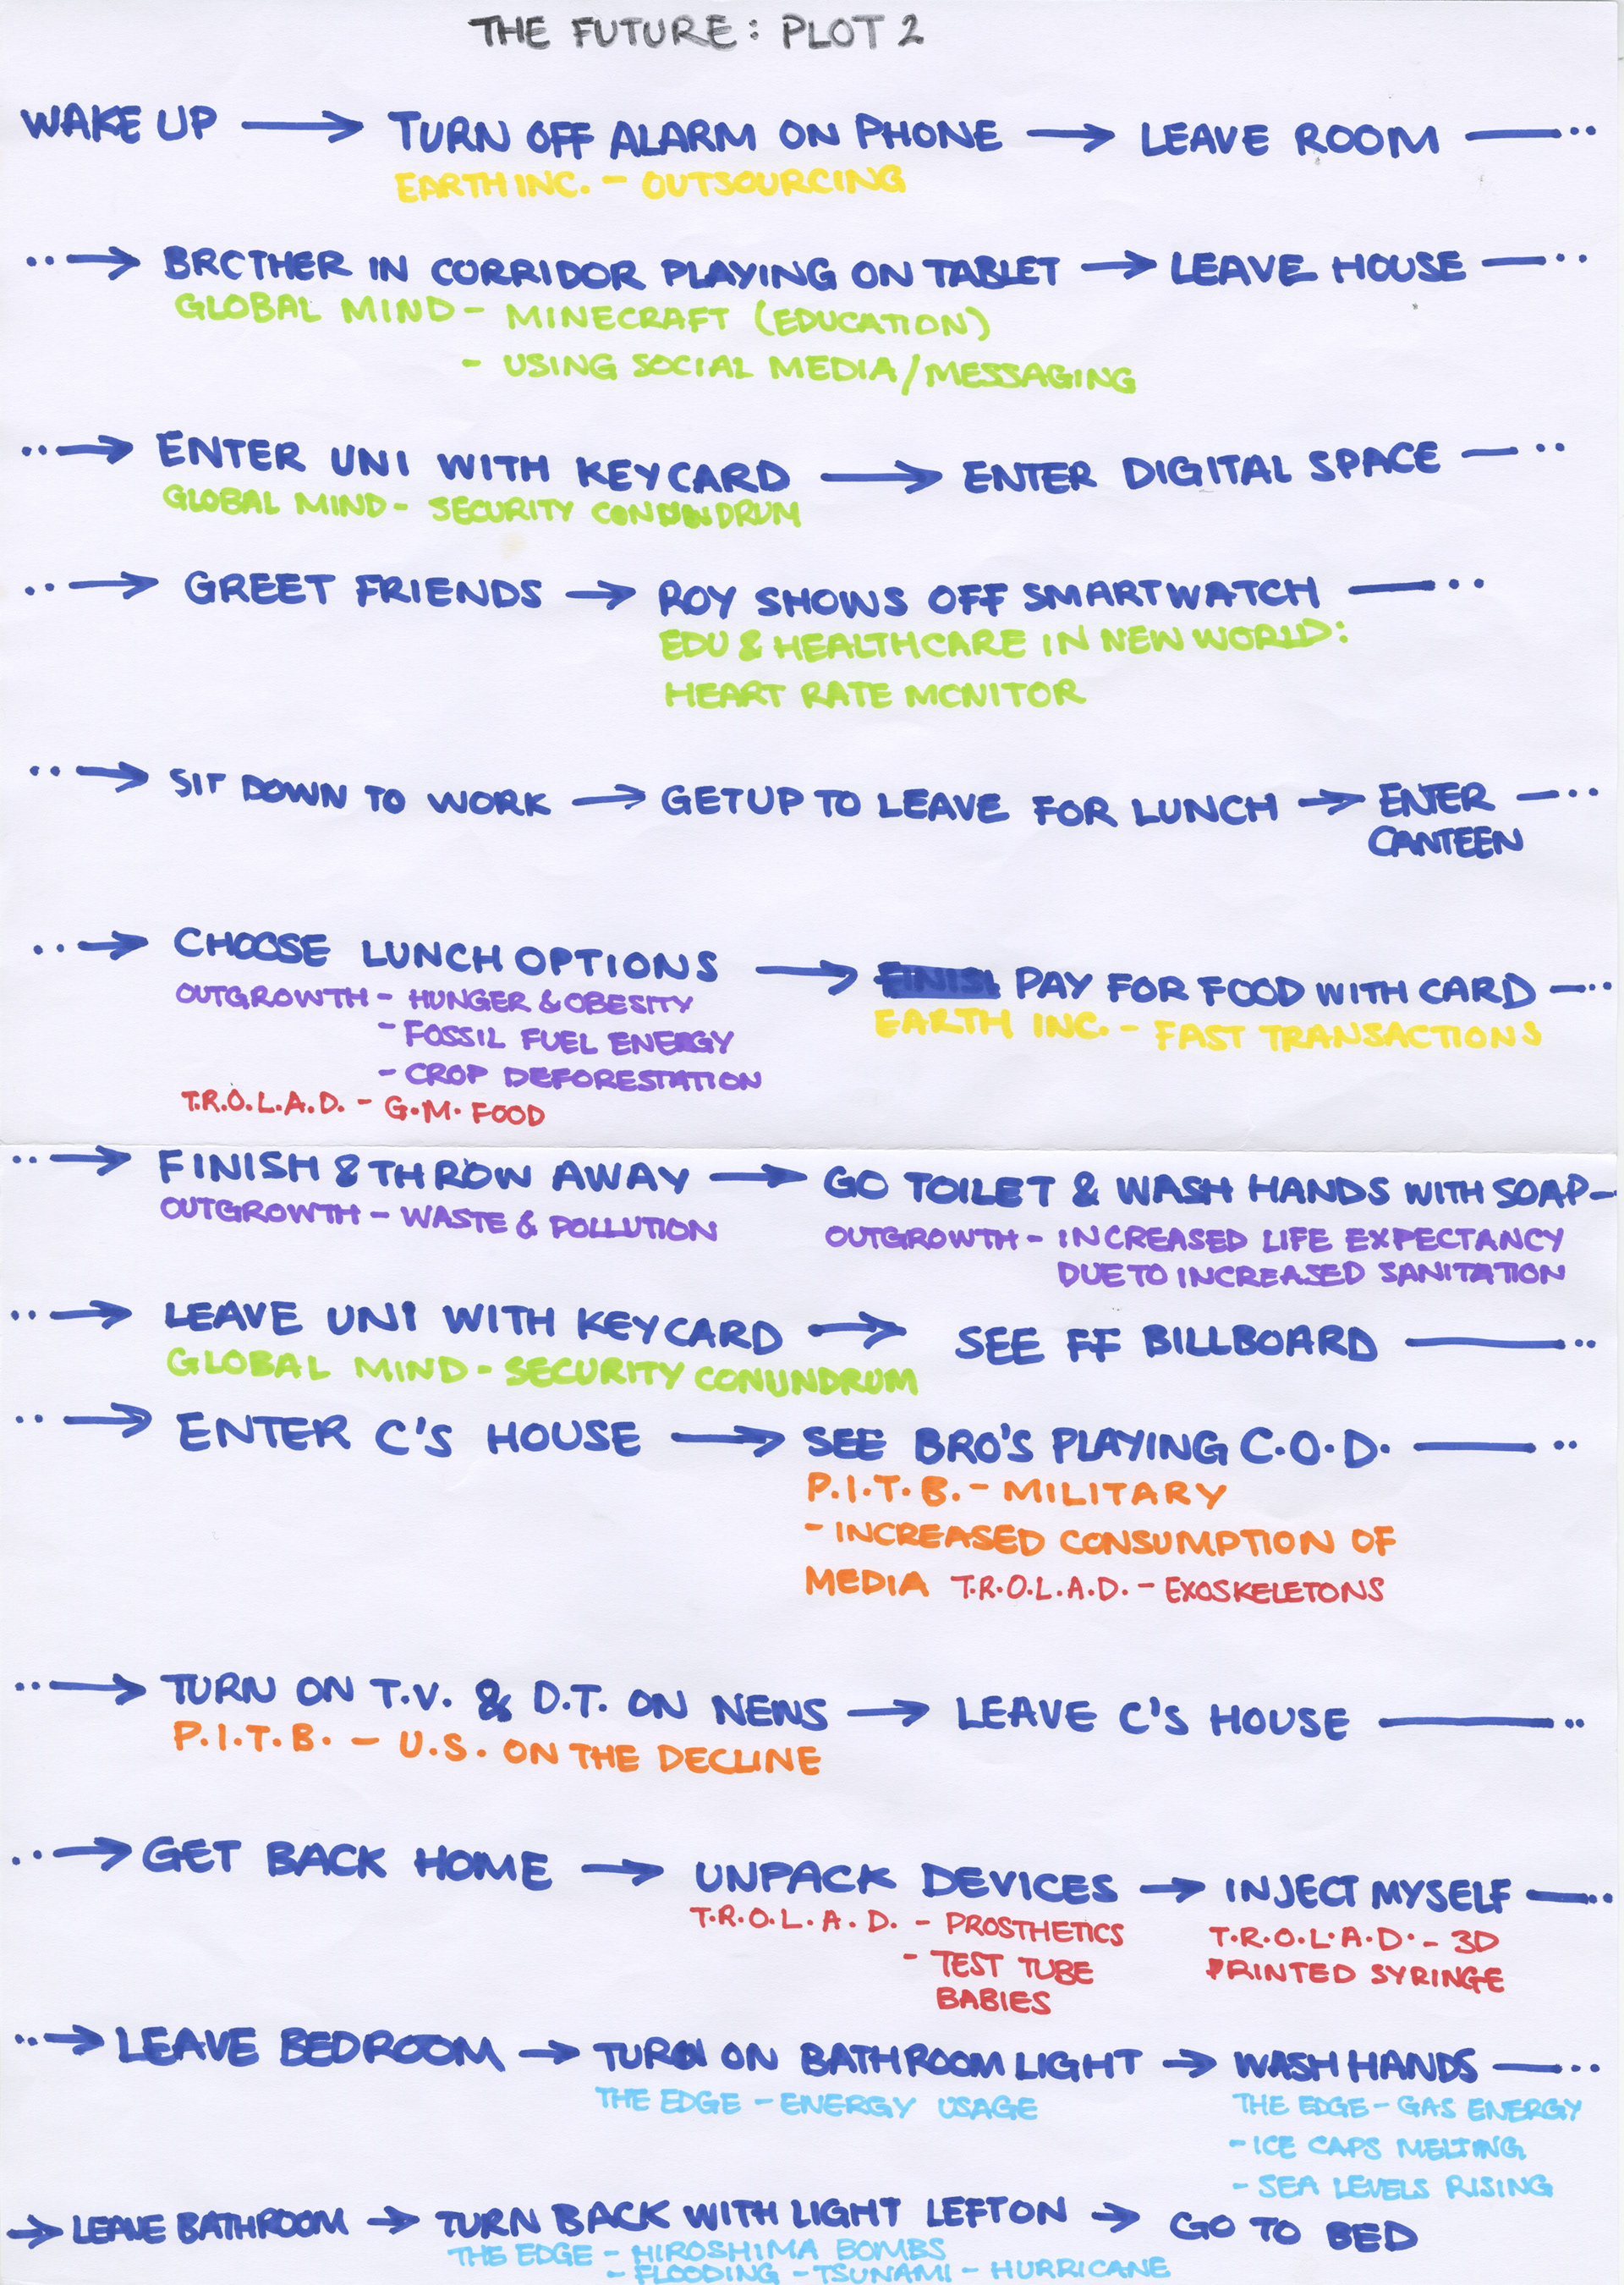 THE FUTURE: PLOT 2
WAKE UP → TURN OFF ALARM ON PHONE → LEAVE ROOM —··
EARTH INC. - OUTSOURCING
··→ BROTHER IN CORRIDOR PLAYING ON TABLET → LEAVE HOUSE —··
GLOBAL MIND - MINECRAFT (EDUCATION)
- USING SOCIAL MEDIA/MESSAGING
··→ ENTER UNI WITH KEYCARD → ENTER DIGITAL SPACE —··
GLOBAL MIND - SECURITY CONUNDRUM
··→ GREET FRIENDS → ROY SHOWS OFF SMARTWATCH —··
EDU & HEALTHCARE IN NEW WORLD:
HEART RATE MONITOR
··→ SIT DOWN TO WORK → GET UP TO LEAVE FOR LUNCH → ENTER —··
CANTEEN
··→ CHOOSE LUNCH OPTIONS → FINISH PAY FOR FOOD WITH CARD —··
OUTGROWTH - HUNGER & OBESITY
EARTH INC. - FAST TRANSACTIONS
- FOSSIL FUEL ENERGY
- CROP DEFORESTATION
T.R.O.L.A.D. - G.M. FOOD
··→ FINISH & THROW AWAY → GO TOILET & WASH HANDS WITH SOAP -
OUTGROWTH - WASTE & POLLUTION
OUTGROWTH - INCREASED LIFE EXPECTANCY
DUE TO INCREASED SANITATION
··→ LEAVE UNI WITH KEYCARD → SEE FF BILLBOARD —··
GLOBAL MIND - SECURITY CONUNDRUM
··→ ENTER C'S HOUSE → SEE BRO'S PLAYING C.O.D. —··
P.I.T.B. - MILITARY
- INCREASED CONSUMPTION OF
MEDIA T.R.O.L.A.D. - EXOSKELETONS
··→ TURN ON T.V. & D.T. ON NEWS → LEAVE C'S HOUSE —··
P.I.T.B. - U.S. ON THE DECLINE
··→ GET BACK HOME → UNPACK DEVICES → INJECT MYSELF —··
T.R.O.L.A.D. - PROSTHETICS
- TEST TUBE
BABIES
T.R.O.L.A.D. - 3D
PRINTED SYRINGE
··→ LEAVE BEDROOM → TURN ON BATHROOM LIGHT → WASH HANDS —··
THE EDGE - ENERGY USAGE
THE EDGE - GAS ENERGY
- ICE CAPS MELTING
- SEA LEVELS RISING
→ LEAVE BATHROOM → TURN BACK WITH LIGHT LEFT ON → GO TO BED
THE EDGE - HIROSHIMA BOMBS
- FLOODING - TSUNAMI - HURRICANE